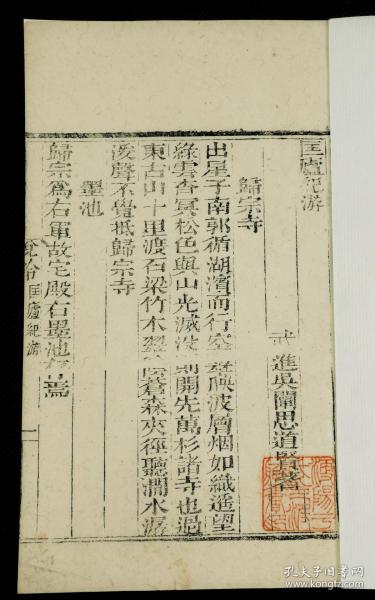 匡廬紀游
武進吳闡思道賢著
歸宗寺
出星子南郭循湖濱而行空波層烟如織遥望
綠雲杳冥松色與山光滅没則開先萬杉諸寺也過
東古山十里渡石梁竹木蒼森夾徑聽澗水潺
湲聲不覺抵歸宗寺
墨池
歸宗爲右軍故宅殿右墨池焉
說鈴 匡廬紀游
一
孔夫子旧书网